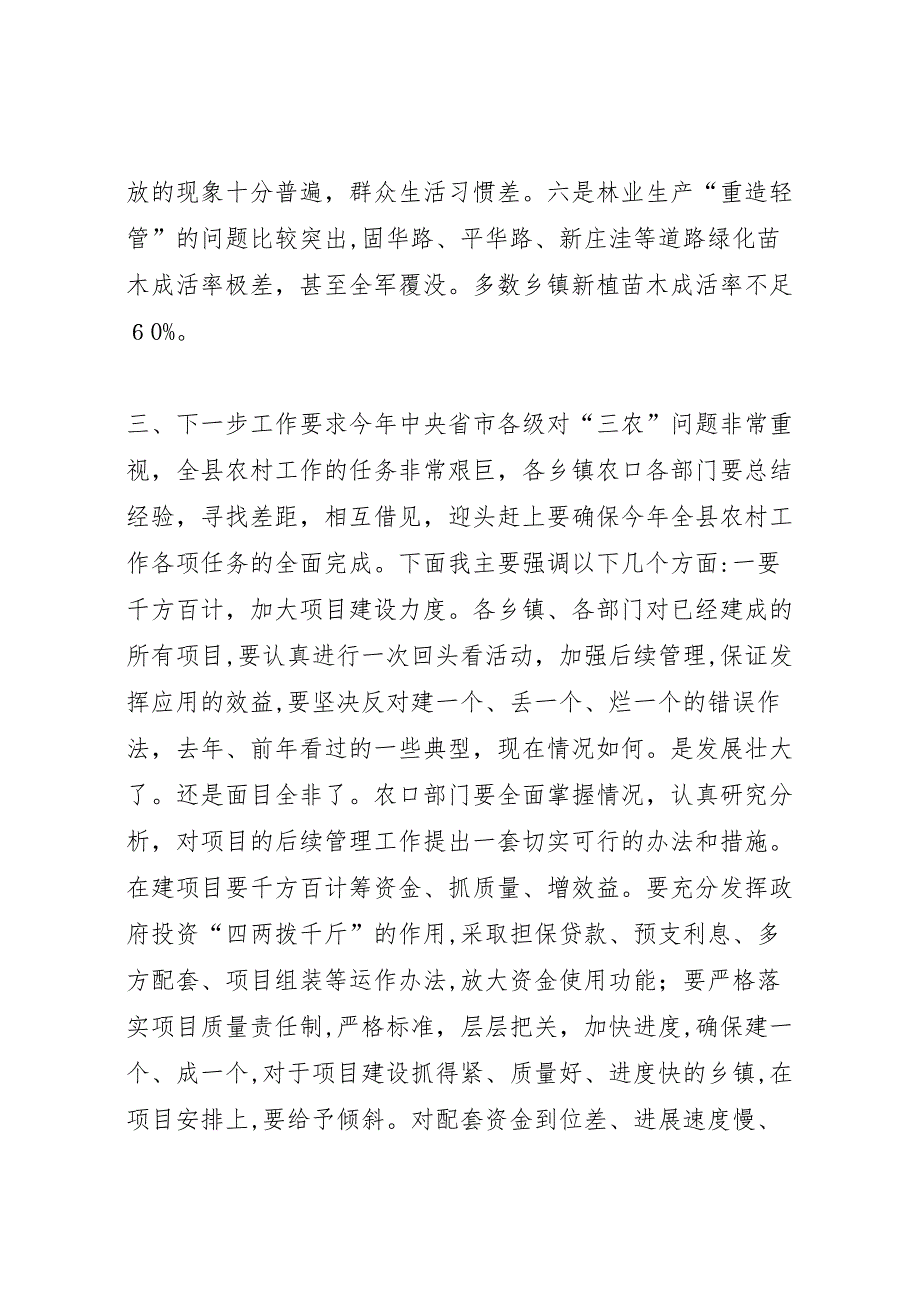 放的现象十分普遍，群众生活习惯差。六是林业生产“重造轻
管”的问题比较突出,固华路、平华路、新庄洼等道路绿化苗
木成活率极差，甚至全军覆没。多数乡镇新植苗木成活率不足
６0%。
三、下一步工作要求今年中央省市各级对“三农”问题非常重
视，全县农村工作的任务非常艰巨，各乡镇农口各部门要总结
经验，寻找差距，相互借见，迎头赶上要确保今年全县农村工
作各项任务的全面完成。下面我主要强调以下几个方面:一要
千方百计，加大项目建设力度。各乡镇、各部门对已经建成的
所有项目,要认真进行一次回头看活动，加强后续管理,保证发
挥应用的效益,要坚决反对建一个、丢一个、烂一个的错误作
法，去年、前年看过的一些典型，现在情况如何。是发展壮大
了。还是面目全非了。农口部门要全面掌握情况，认真研究分
析，对项目的后续管理工作提出一套切实可行的办法和措施。
在建项目要千方百计筹资金、抓质量、增效益。要充分发挥政
府投资“四两拨千斤”的作用,采取担保贷款、预支利息、多
方配套、项目组装等运作办法,放大资金使用功能；要严格落
实项目质量责任制,严格标准，层层把关，加快进度,确保建一
个、成一个,对于项目建设抓得紧、质量好、进度快的乡镇,在
项目安排上,要给予倾斜。对配套资金到位差、进展速度慢、